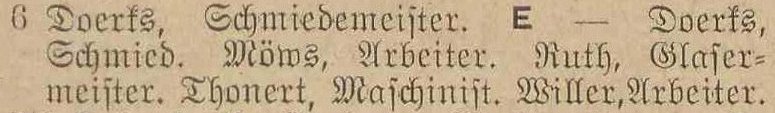 6 Doerks, Schmiedemeister. E — Doerks,
Schmied. Möws, Arbeiter. Ruth, Glaser-
meister. Thonert, Maschinist. Willer, Arbeiter.